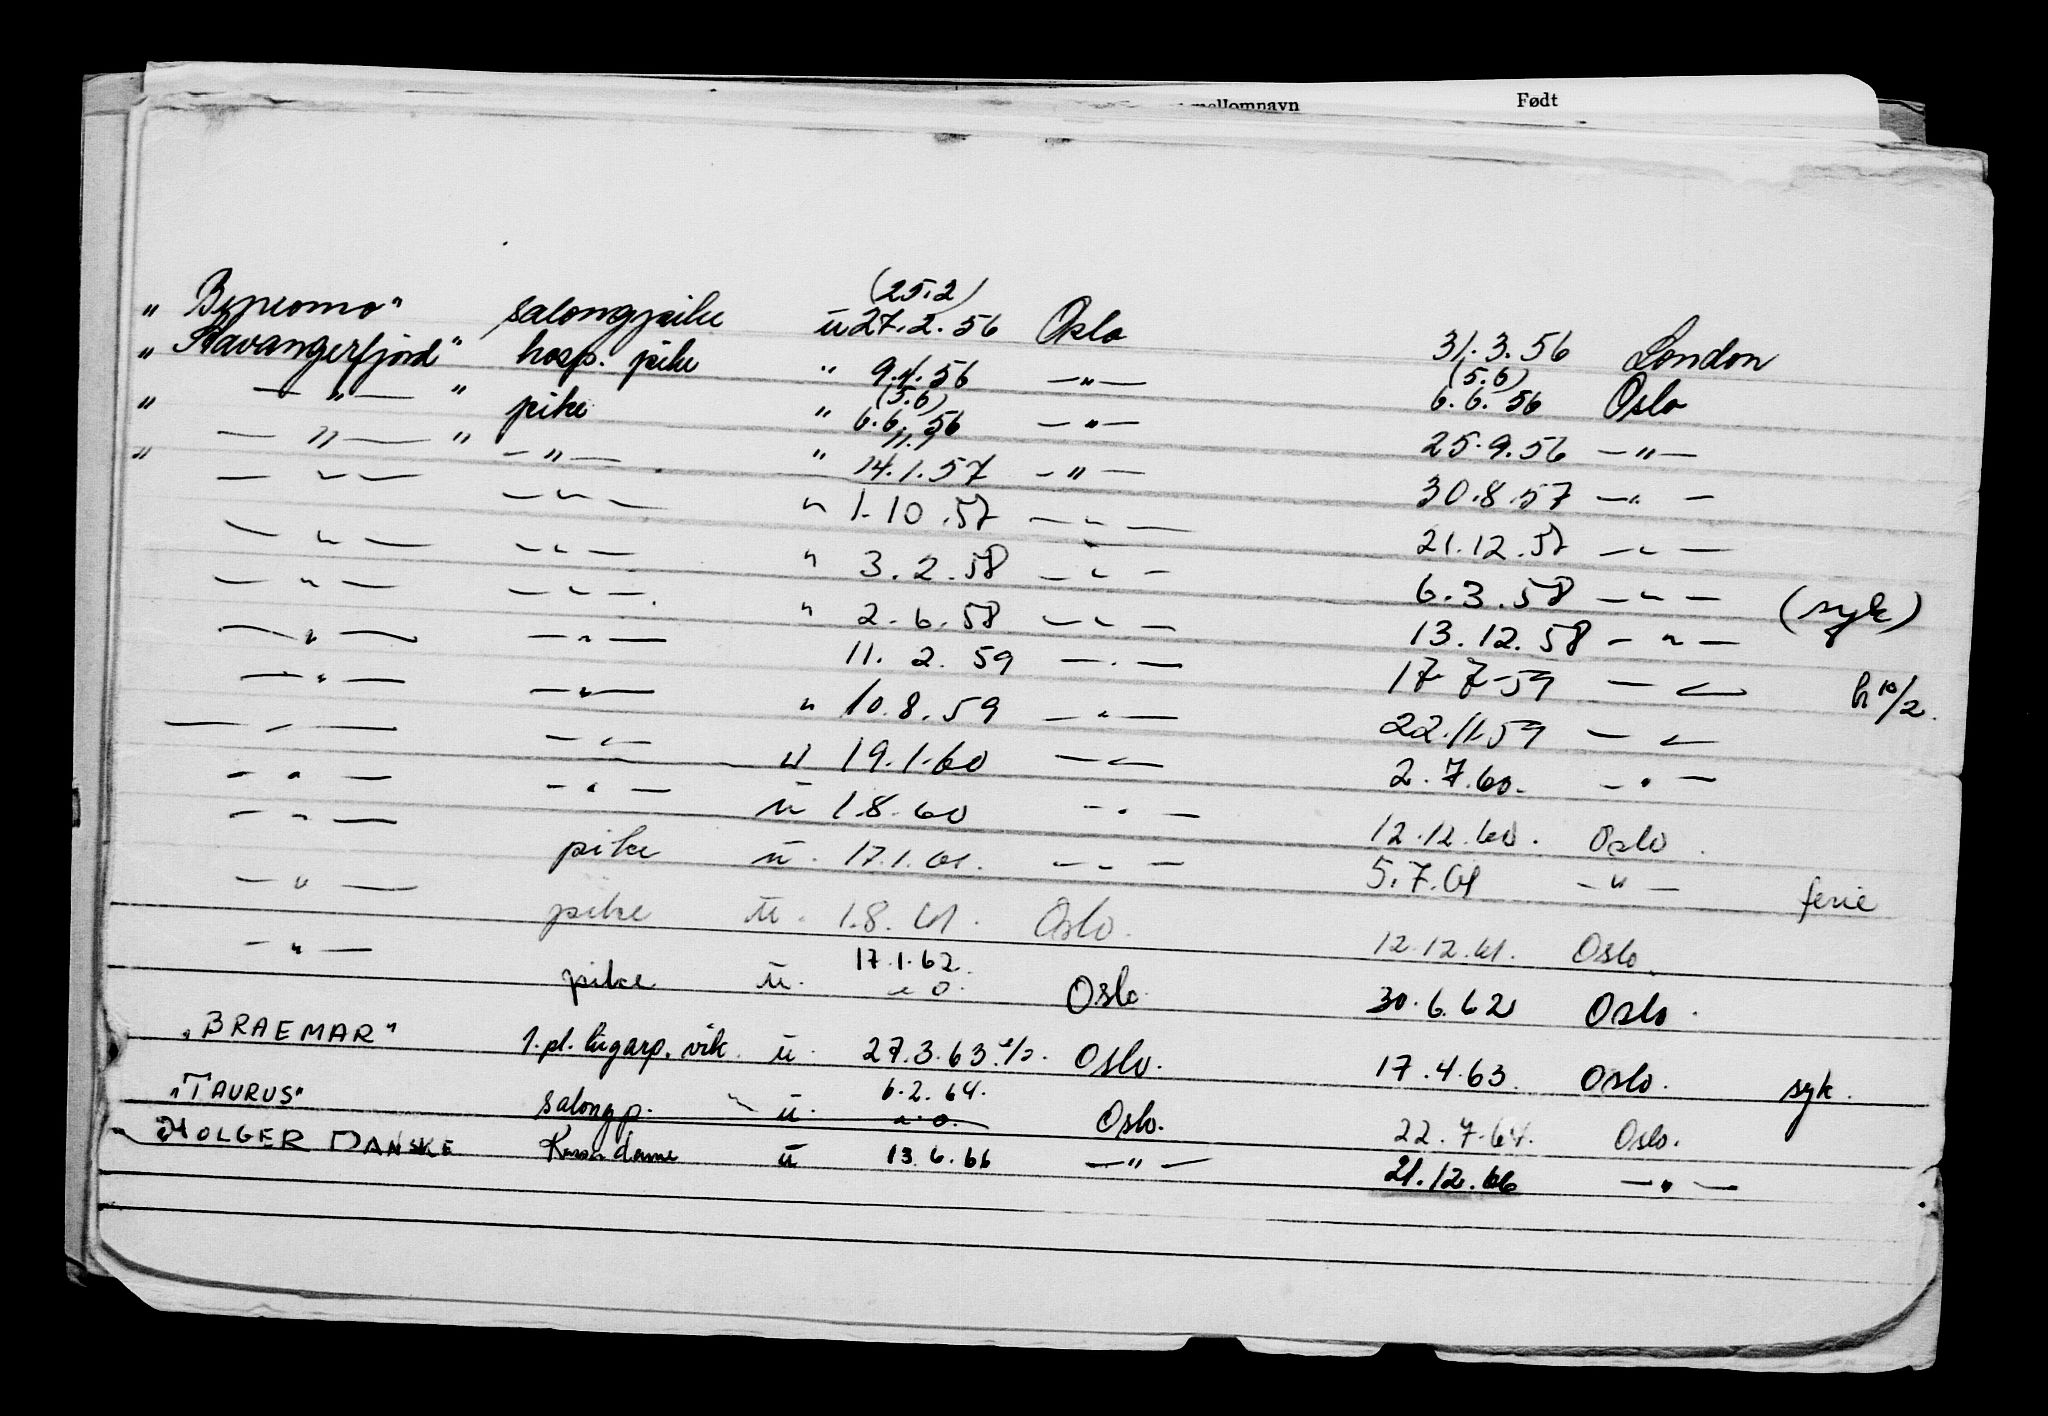 mellomnavn Født
(25.2)
" Bypromo" salongpike u 27.2.56 Oslo 31.3.56 London
" Stavangerfjord" hosp. pike " 9.4.56 —"— (5.6) 6.6.56 Oslo
" —"— " pike " (5.6) 6.6.56 —"— 25.9.56 —"—
" —"— " —"— " 11.1 14.1.57 —"— 30.8.57 —"—
—"— —"— " 1.10.57 —"— 21.12.57 —"—
—"— —"— " 3.2.58 —"— 6.3.58 —"— (syk)
—"— —"— " 2.6.58 —"— 13.12.58 —"—
—"— —"— 11.2.59 —"— 17-7-59 —"— h 10/2.
—"— —"— " 10.8.59 —"— 22.11.59 —"—
—"— —"— u 19.1.60 —"— 2.7.60. —"—
—"— —"— u 1.8.60 —"— 12.12.60. Oslo.
—"— pike u. 17.1.61. —"— 5.7.61 —"— ferie
—"— pike u. 1.8.61. Oslo. 12.12.61. Oslo.
—"— pike u. 17.1.62. Oslo 30.6.62 Oslo.
"BRAEMAR" 1.pl. lugarp. vik. u. 27.3.63. Oslo. 17.4.63. Oslo. syk.
"TAURUS" salongp. u. 6.2.64. Oslo. 22.7.64. Oslo.
HOLGER DANSKE Kassadame u 13.6.66 —"— 21.12.66 —"—